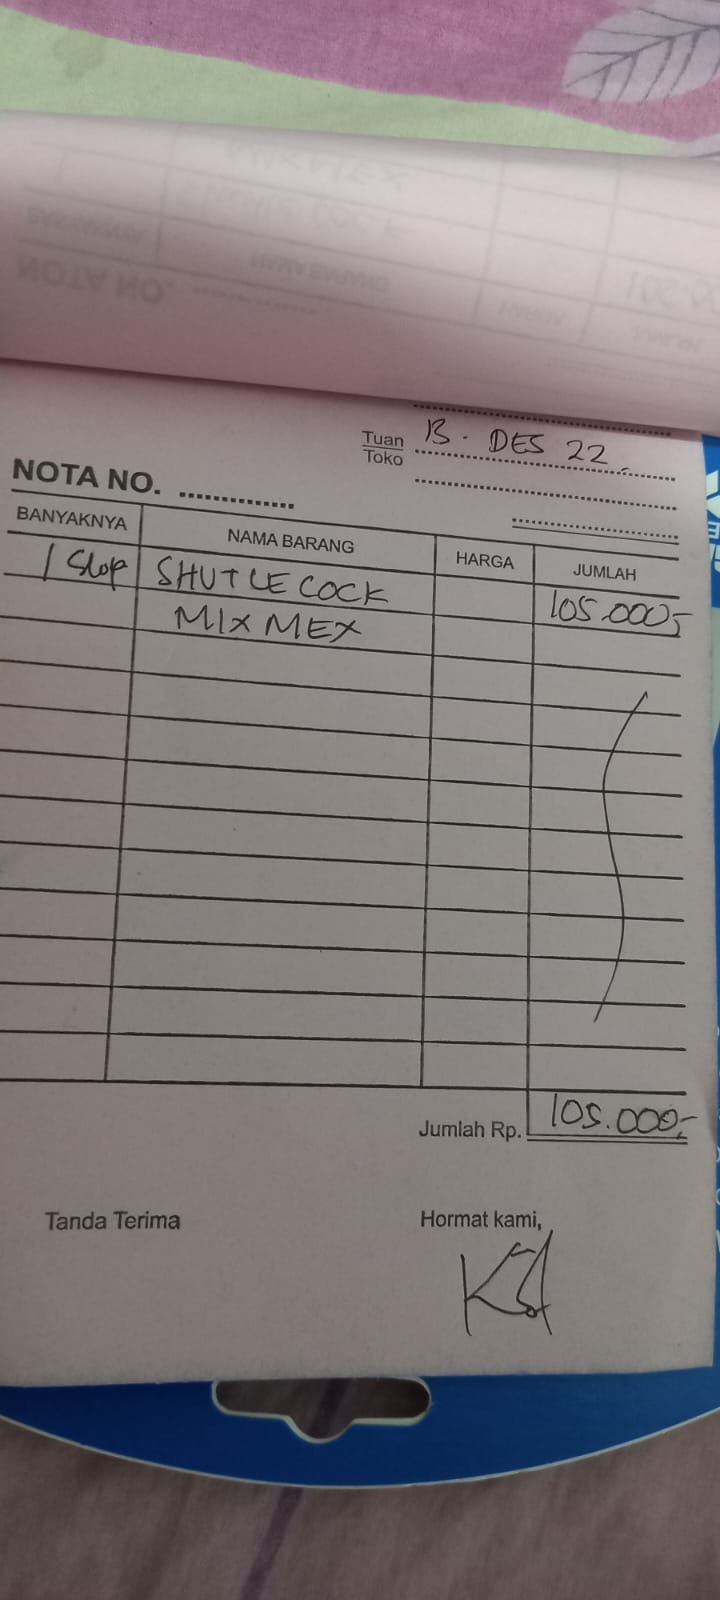 Tuan
Toko
13 . DES 22
NOTA NO.
BANYAKNYA NAMA BARANG HARGA JUMLAH
1 Slop SHUTLECOCK 105.000,-
MIXMEX
Jumlah Rp. 105.000,-
Tanda Terima Hormat kami,